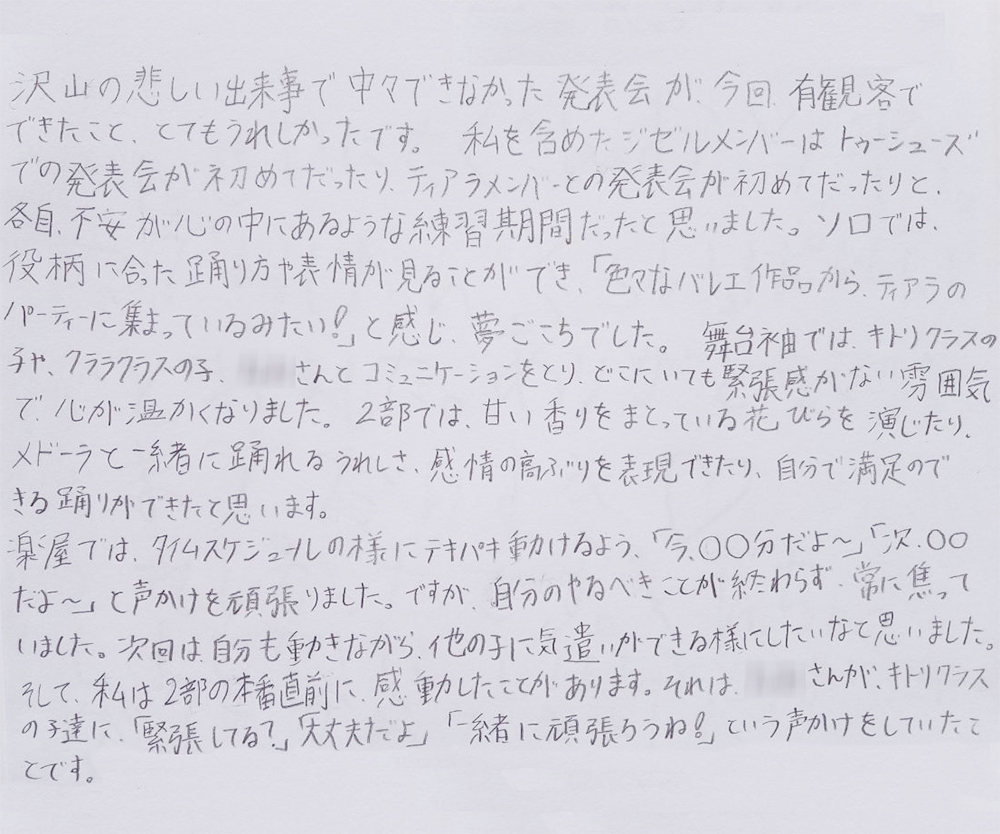 沢山の悲しい出来事で中々できなかった発表会が、今回、有観客で
できたこと、とてもうれしかったです。 私を含めたジゼルメンバーはトゥーシューズ
での発表会が初めてだったり、ティアラメンバーとの発表会が初めてだったりと、
各自、不安が心の中にあるような練習期間だったと思いました。ソロでは、
役柄に合った踊り方や表情が見ることができ、「色々なバレエ作品から、ティアラの
パーティーに集まっているみたい!」と感じ、夢ごこちでした。 舞台袖では、キトリクラスの
子や、クララクラスの子、 さんとコミュニケーションをとり、どこにいても緊張感がない雰囲気
で、心が温かくなりました。 2部では、甘い香りをまとっている花びらを演じたり、
メドーラと一緒に踊れるうれしさ、感情の高ぶりを表現できたり、自分で満足ので
きる踊りができたと思います。
楽屋では、タイムスケジュールの様にテキパキ動けるよう、「今、〇〇分だよ～」「次、〇〇
だよ～」と声かけを頑張りました。ですが、自分のやるべきことが終わらず、常に焦って
いました。次回は、自分も動きながら、他の子に気遣いができる様にしたいなと思いました。
そして、私は2部の本番直前に、感動したことがあります。それは、 さんが、キトリクラス
の子達に、「緊張してる?」「大丈夫だよ」「一緒に頑張ろうね!」という声かけをしていたこ
とです。